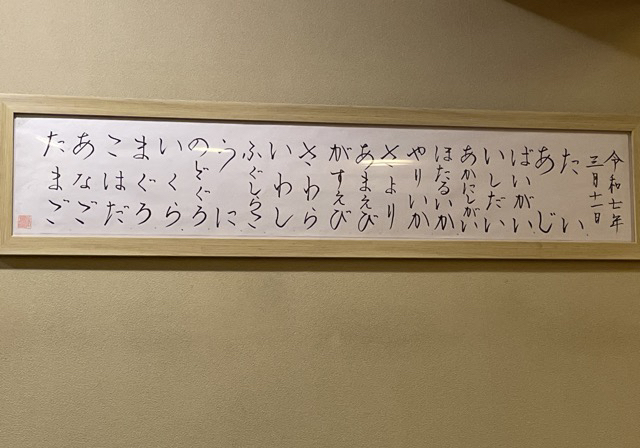 令和七年
三月十一日
たい
あじ
ばいがい
いしだい
あかにしがい
ほたるいか
やりいか
さより
あまえび
がすえび
さわら
いわし
ふぐしらこ
うに
のどぐろ
いくら
まぐろ
こはだ
あなご
たまご